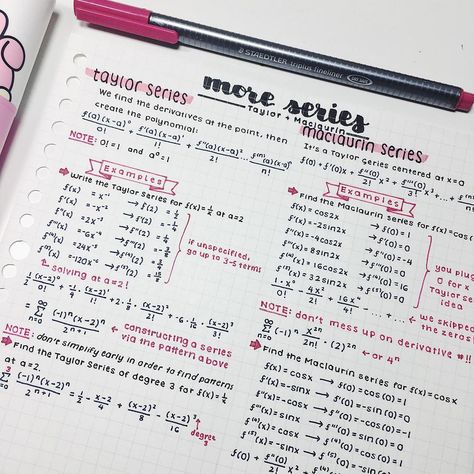 STAEDTLER triplus fineliner
more series
Taylor + Maclaurin
taylor series
We find the derivatives at the point, then
create the polynomial:
f(a)(x-a)⁰/0! + f'(a)(x-a)'/1! + f''(a)(x-a)²/2! ... fⁿ(a)(x-a)ⁿ/n!
NOTE: 0! = 1 and a⁰ = 1
Examples
Write the Taylor Series for f(x) = 1/x at a=2
f(x) = x⁻¹ → f(2) = 1/2
f'(x) = -x⁻² → f'(2) = -1/4
f''(x) = 2x⁻³
f'''(x) = -6x⁻⁴
f⁽⁴⁾(x) = 24x⁻⁵
f⁽⁵⁾(x) = -120x⁻⁶
if unspecified,
go up to 3-5 terms
solving at a=2!
Σ (-1)ⁿ(x-2)ⁿ/2ⁿ⁺¹
constructing a series
via the pattern above
NOTE: don't simplify early in order to find patterns
Find the Taylor Series of degree 3 for f(x) = 1/x
at a=2.
Σ (-1)ⁿ(x-2)ⁿ/2ⁿ⁺¹ = 1/2 - (x-2)/4 + (x-2)²/8 - (x-2)³/16
degree 3
maclaurin series
It's a Taylor Series centered at x=0
f(0) + f'(0)x + f''(0)/2! x² + f'''(0)/3! x³ + ...
Examples
Find the Maclaurin series for f(x) = cos
f(x) = cos2x → f(0) = 1
f'(x) = -2sin2x → f'(0) = 0
f''(x) = -4cos2x → f''(0) = -4
f'''(x) = 8sin2x → f'''(0) = 0
f⁽⁴⁾(x) = 16cos2x → f⁽⁴⁾(0) = 16
f⁽⁵⁾(x) = 32sin2x → f⁽⁵⁾(0) = 0
you plu
0 for x
Taylor s
idea
1·x⁰/0! - 4x²/2! + 16x⁴/4!
we skipped
the zeros!
Σ (-1)ⁿ x²ⁿ/2n! · (2)²ⁿ ← or 4ⁿ
NOTE: don't mess up on derivative #!!
Find the Maclaurin series for f(x) = cosx
f(x) = cosx → f(0) = cos(0) = 1
f'(x) = -sinx → f'(0) = -sin(0) = 0
f''(x) = -cosx → f''(0) = -cos(0) = -1
f'''(x) = sinx → f'''(0) = sin(0) = 0
f⁽⁴⁾(x) = cosx → f⁽⁴⁾(0) = cos(0) = 1
f⁽⁵⁾(x) = -sinx → f⁽⁵⁾(0) = -sin(0) = 0